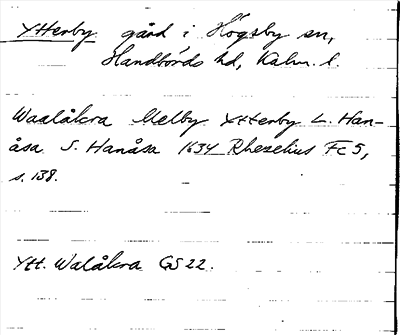 Ytterby gård i Högsby sn,
Handbörds hd, Kalm. l.
Waalåkra Melby Ytterby L. Han-
åsa S. Hanåsa 1634 Rhezelius Fc5,
s. 138.
Ytt. Walåkra GS 22.